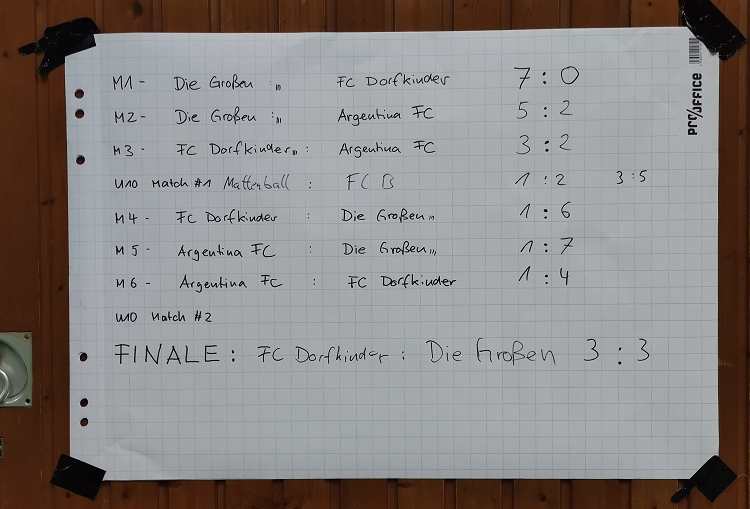 M1 - Die Großen ,,, FC Dorfkinder 7 : 0
M2 - Die Großen : ,,, Argentina FC 5 : 2
M3 - FC Dorfkinder ,,, : Argentina FC 3 : 2
U10 Match #1 Mattenball : FC B 1 : 2 3 : 5
M4 - FC Dorfkinder : Die Großen ,,, 1 : 6
M5 - Argentina FC : Die Großen ,,, 1 : 7
M6 - Argentina FC : FC Dorfkinder 1 : 4
U10 Match #2
FINALE : FC Dorfkinder : Die Großen 3 : 3
PRO/OFFICE